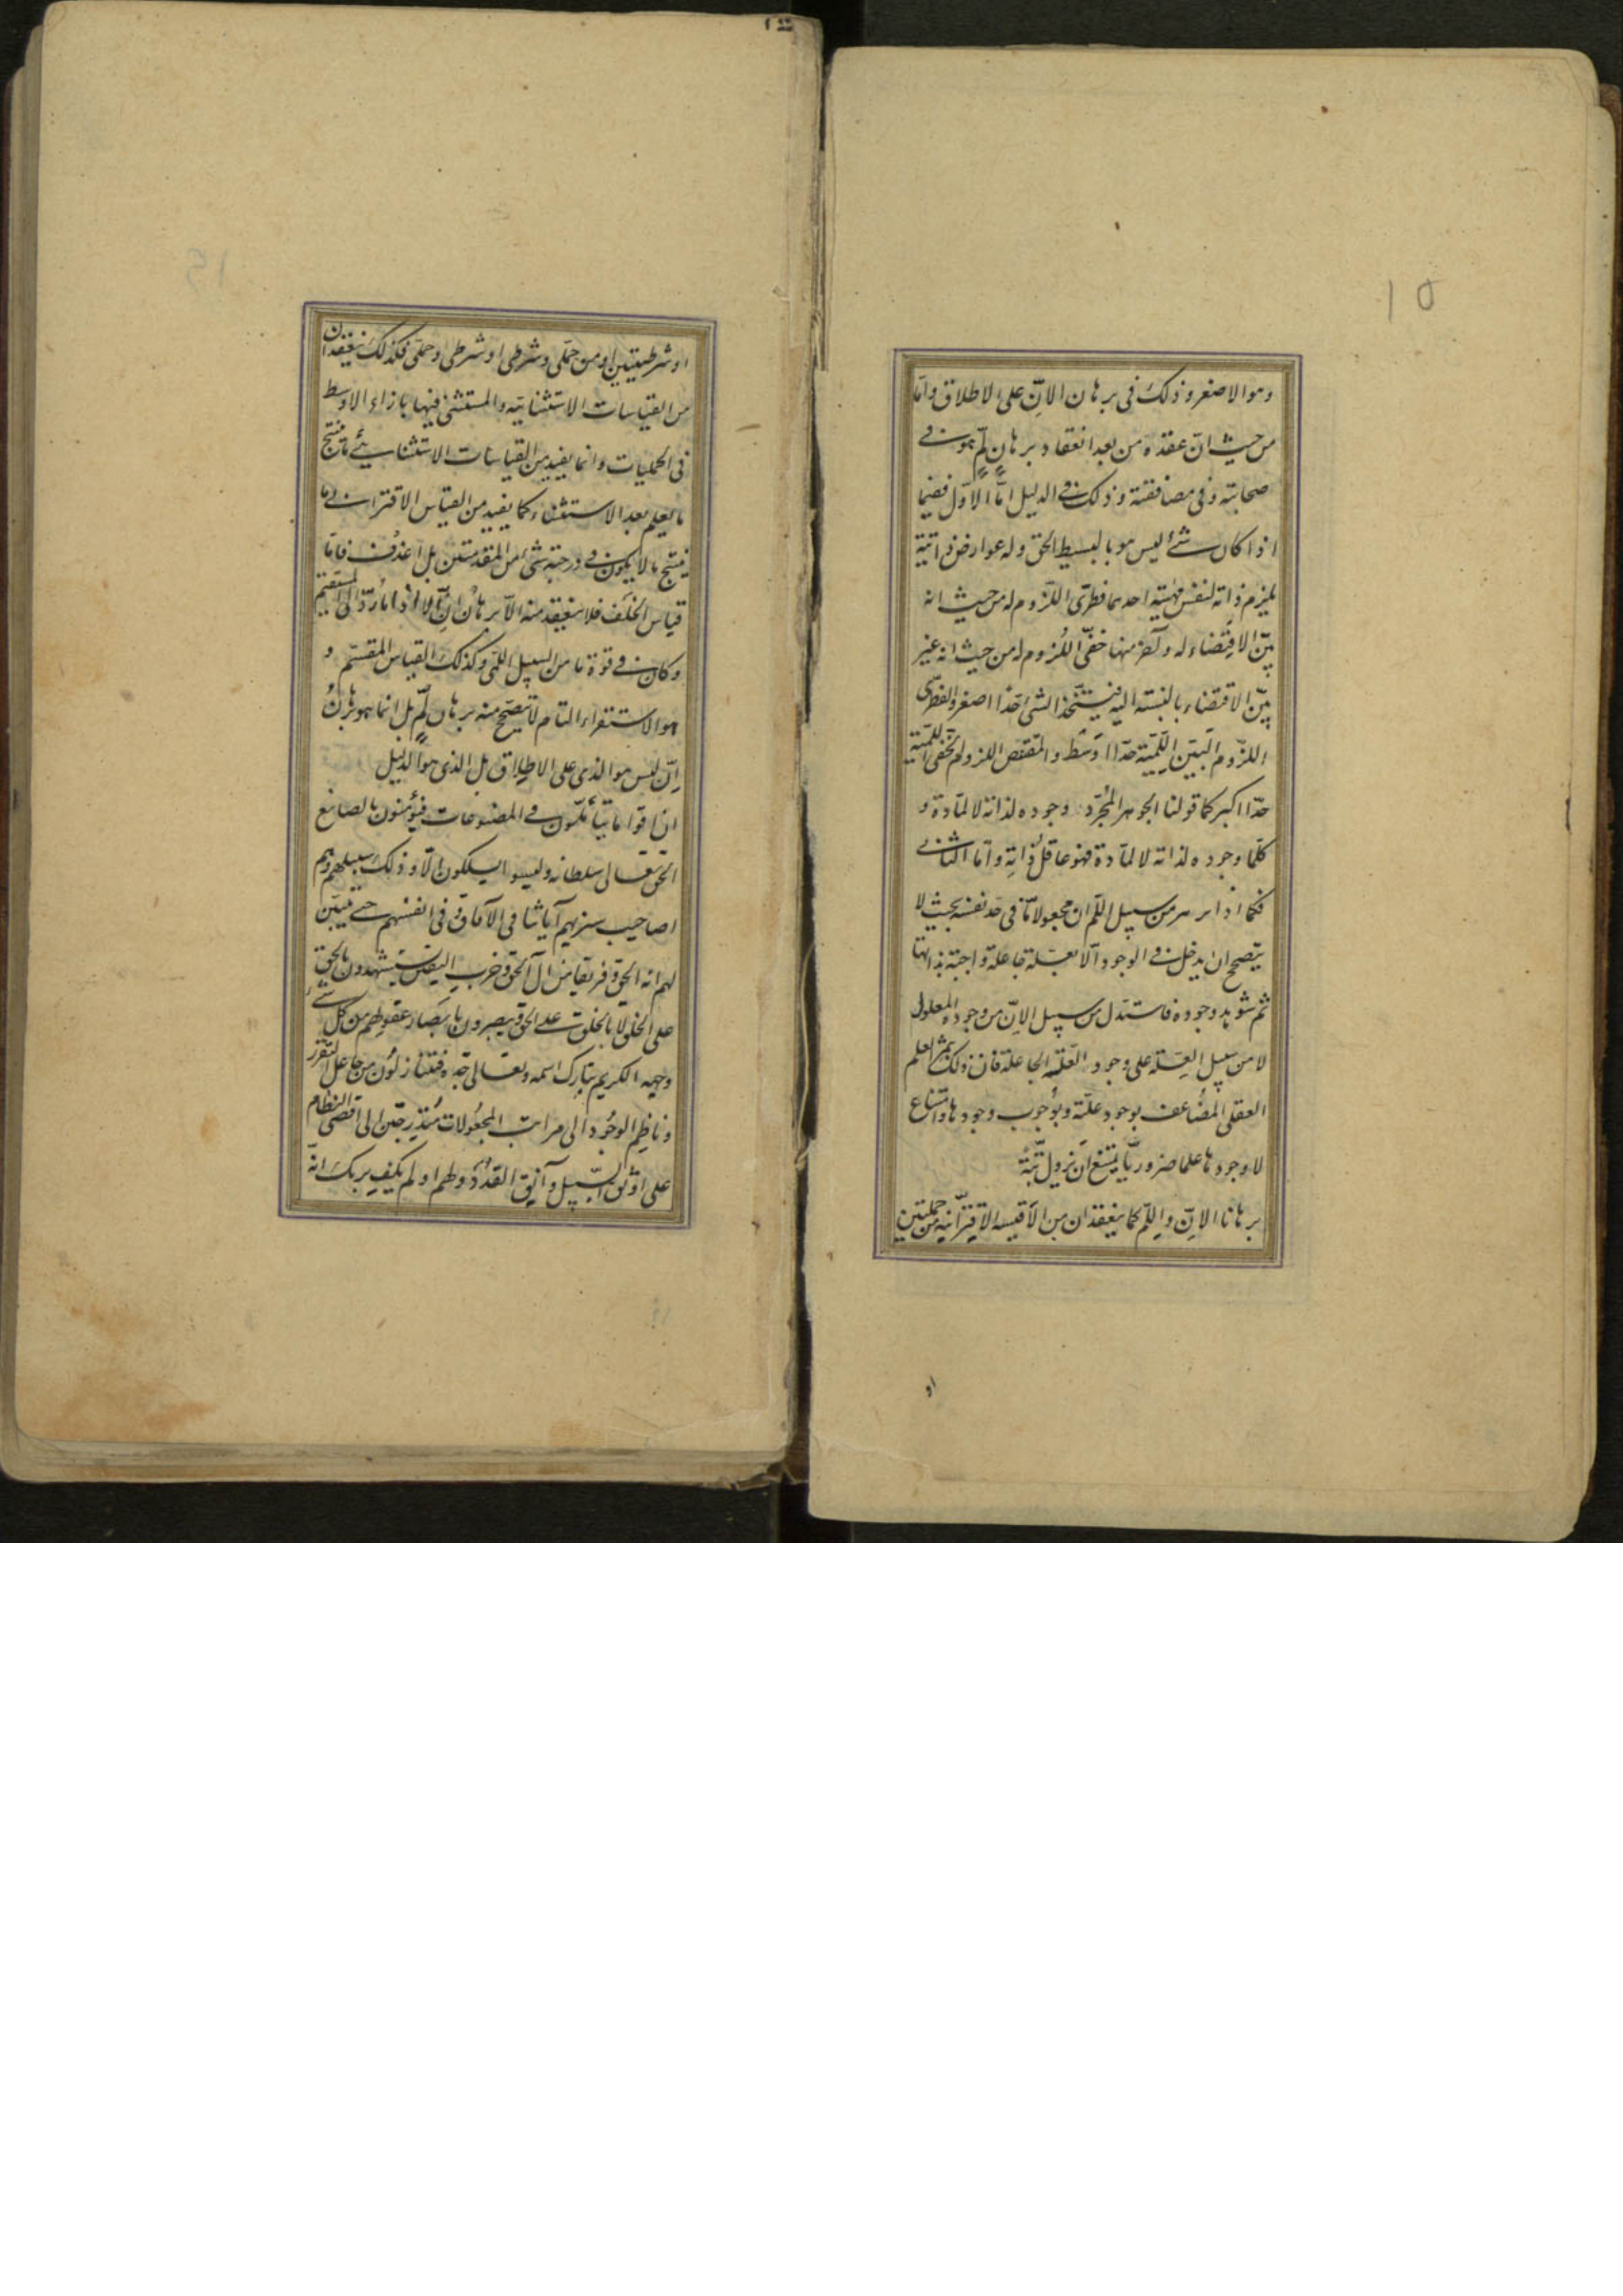 ١٥
وهو الاصغر وذلك في برهان الانّ على الاطلاق واما
من حيث انّ عقده من بعد انعقاد برهان لمّ هو في
صحابته وفي مصافقته وذلك في الدليل امّا الاوّل ففيما
اذا كان شئ ليس هو بالبسيط الحق وله عوارض ذاتية
يلزم ذاته لنفس مهيّته احدهما فطرىّ اللّزوم له من حيث انه
بيّن الاقتضاء له وآخر منها خفىّ اللّزوم له من حيث انه غير
بيّن الاقتضاء بالنسبته اليه فيتّخذ الشئ حدّا اصغر والفطرىّ
اللزوم البيّن اللّمّيّة حدّا اوسط والمقتص اللزوم الخفىّ اللّمّيّة
حدّا اكبر كما قولنا الجوهر المجرّد وجوده لذاته لا لمادة و
كلّما وجوده لذاته لا لمادة فهو عاقل ذاته وامّا الثانى
فكما اذا برهن من سبيل اللّم ان مجعولا مّا في حد نفسه بحيث لا
يتصحح ان يدخل في الوجود الّا بعلّة جاعلة واجبة بذاتها
ثم شوهد وجوده فاستدل من سبيل الانّ من وجود المعلول
لا من سبيل العلّة على وجود العلّة الجاعلة فان ذلك يثمر العلم
العقلى المضاعف بوجود علّته وبوجوب وجودها وامتناع
لا وجودها علما ضروريّا يمتنع ان يزول بتّة
برهانا الانّ واللّم كما ينعقدان من الاقيسه الاقترانية من حمليتين
او
او شرطيتين او من حملى وشرطى او شرطى وحملى فكذلك ينعقدان
من القياسات الاستثنائية والمستثنى فيها بازاء الاوسط
في الحمليات وانما يفيد من القياسات الاستثنائية ما ينتج
ما يعلم بعد الاستثناء كما يفيد من القياس الاقترانى ما
ينتج ما لا يكون في درجته شئ من المقدمتين بل فامّا
قياس الخلف فلا ينعقد منه الّا برهان انّ الّا اذا ما ردّ الى المستقيم
وكان في قوّة ما من السبيل اللّمى وكذلك القياس المقسّم و
هو الاستقراء التام لا يتصحّح منه برهان لمّ بل انما هو برهان
انّ ليس هو الذى على الاطلاق بل الذى هو الدليل
ان اقواما يتأمّلون في المصنوعات فيؤمنون بالصانع
الحق تعالى سلطانه وليسوا يسلكون الّا وذلك سبيلهم وهم
اصاحيب سنريهم آياتنا في الآفاق وفي انفسهم حتى يتبيّن
لهم انه الحق وفريقا من آل الحق وحزب اليقين يستشهدون بالحق
على الخلق لا بالخلق على الحق ويبصرون بابصار عقولهم من كل شئ
وجهه الكريم تبارك اسمه وتعالى جدّه فيتنازلون من جاعل التقرّر
وناظم الوجود الى مراتب المجعولات متدرّجين الى اقصى النظام
على اوثق السّبيل وآنق القدد ولهم اولم يكف بربك انّه